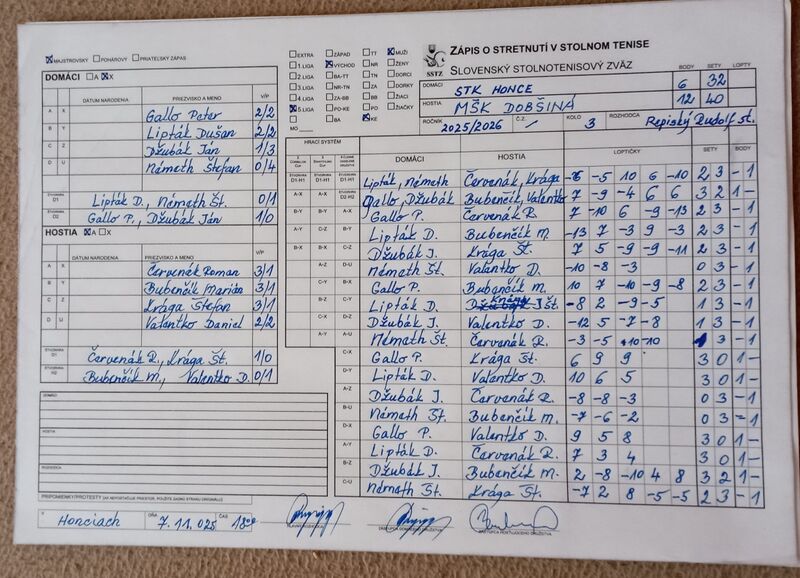 MAJSTROVSKÝ POHÁROVÝ PRIATEĽSKÝ ZÁPAS
DOMÁCI A X
DÁTUM NARODENIA PRIEZVISKO A MENO V/P
A X Gallo Peter 2/2
B Y Lipták Dušan 2/2
C Z Džubák Ján 1/3
D U Németh Štefan 0/4
ŠTVORHRA D1 Lipták D., Németh Št. 0/1
ŠTVORHRA D2 Gallo P., Džubák Ján 1/0
HOSTIA A X
DÁTUM NARODENIA PRIEZVISKO A MENO V/P
A X Červenák Roman 3/1
B Y Bubenčík Marián 3/1
C Z Krága Štefan 3/1
D U Valentko Daniel 2/2
ŠTVORHRA D1 Červenák R., Krága Št. 1/0
ŠTVORHRA H2 Bubenčík M., Valentko D. 0/1
DOMÁCI
HOSTIA
ROZHODCA
PRIPOMIENKY/PROTESTY
V Honciach DŇA 7.11.025 ČAS 18°°
EXTRA ZÁPAD TT MUŽI
1. LIGA VÝCHOD NR ŽENY
2. LIGA BA-TT TN DORCI
3. LIGA NR-TN ZA DORKY
4. LIGA ZA-BB BB ŽIACI
5. LIGA PO-KE PO ŽIAČKY
BA KE
MO
SSTZ
ZÁPIS O STRETNUTÍ V STOLNOM TENISE
SLOVENSKÝ STOLNOTENISOVÝ ZVÄZ
BODY SETY LOPTY
DOMÁCI STK HONCE 6 32
HOSTIA MŠK DOBŠINÁ 12 40
ROČNÍK 2025/2026 Č.Z. / KOLO 3 ROZHODCA Repiský Rudolf st.
HRACÍ SYSTÉM
DOMÁCI HOSTIA LOPTIČKY SETY BODY
D1-H1 D1-H1 D1-H1 Lipták, Németh Červenák, Krága -6 -5 10 6 -10 2 3 - 1
A-X A-X D2-H2 Gallo, Džubák Bubenčík, Valentko 7 -9 -4 6 6 3 2 1 -
B-Y B-Y A-X Gallo P. Červenák R. 7 -10 6 -9 -13 2 3 - 1
A-Y C-Z B-Y Lipták D. Bubenčík M. -13 7 -3 9 -3 2 3 - 1
B-X B-X C-Z Džubák J. Krága Št. 7 5 -9 -9 -11 2 3 - 1
A-Z D-U Németh Št. Valentko D. -10 -8 -3 0 3 - 1
C-Y B-X Gallo P. Bubenčík M. 10 7 -10 -9 -8 2 3 - 1
B-Z C-Y Lipták D. Št. -8 2 -9 -5 1 3 - 1
C-X D-Z Džubák J. Valentko D. -12 5 -7 -8 1 3 - 1
A-Y A-U Németh Št. Červenák R. -3 -5 -10 -10 3 - 1
C-X Gallo P. Krága Št. 6 9 9 3 0 1 -
D-Y Lipták D. Valentko D. 10 6 5 3 0 1 -
A-Z Džubák J. Červenák R. -8 -8 -3 0 3 - 1
B-U Németh Št. Bubenčík M. -7 -6 -2 0 3 - 1
D-X Gallo P. Valentko D. 9 5 8 3 0 1 -
A-Y Lipták D. Červenák R. 7 3 4 3 0 1 -
B-Z Džubák J. Bubenčík M. 2 -8 -10 4 8 3 2 1 -
C-U Németh Št. Krága Št. -7 2 8 -5 -5 2 3 - 1